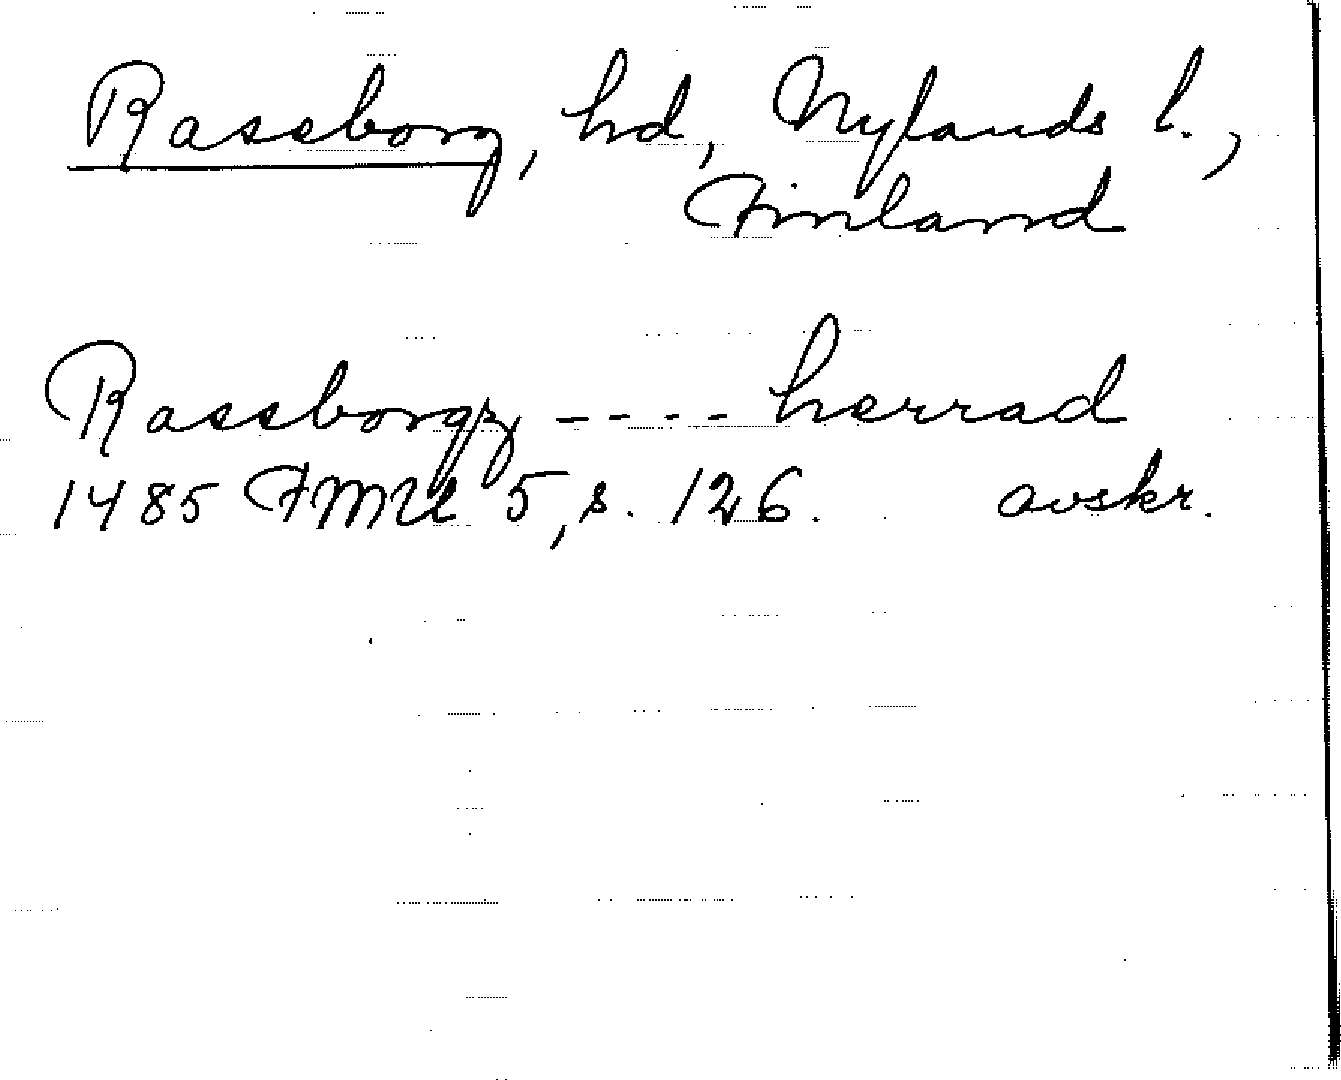 Rassborg, hd, Nylands l.,
Finland
Rassborgz ---- herrad
1485 FMU 5, s. 126. avskr.